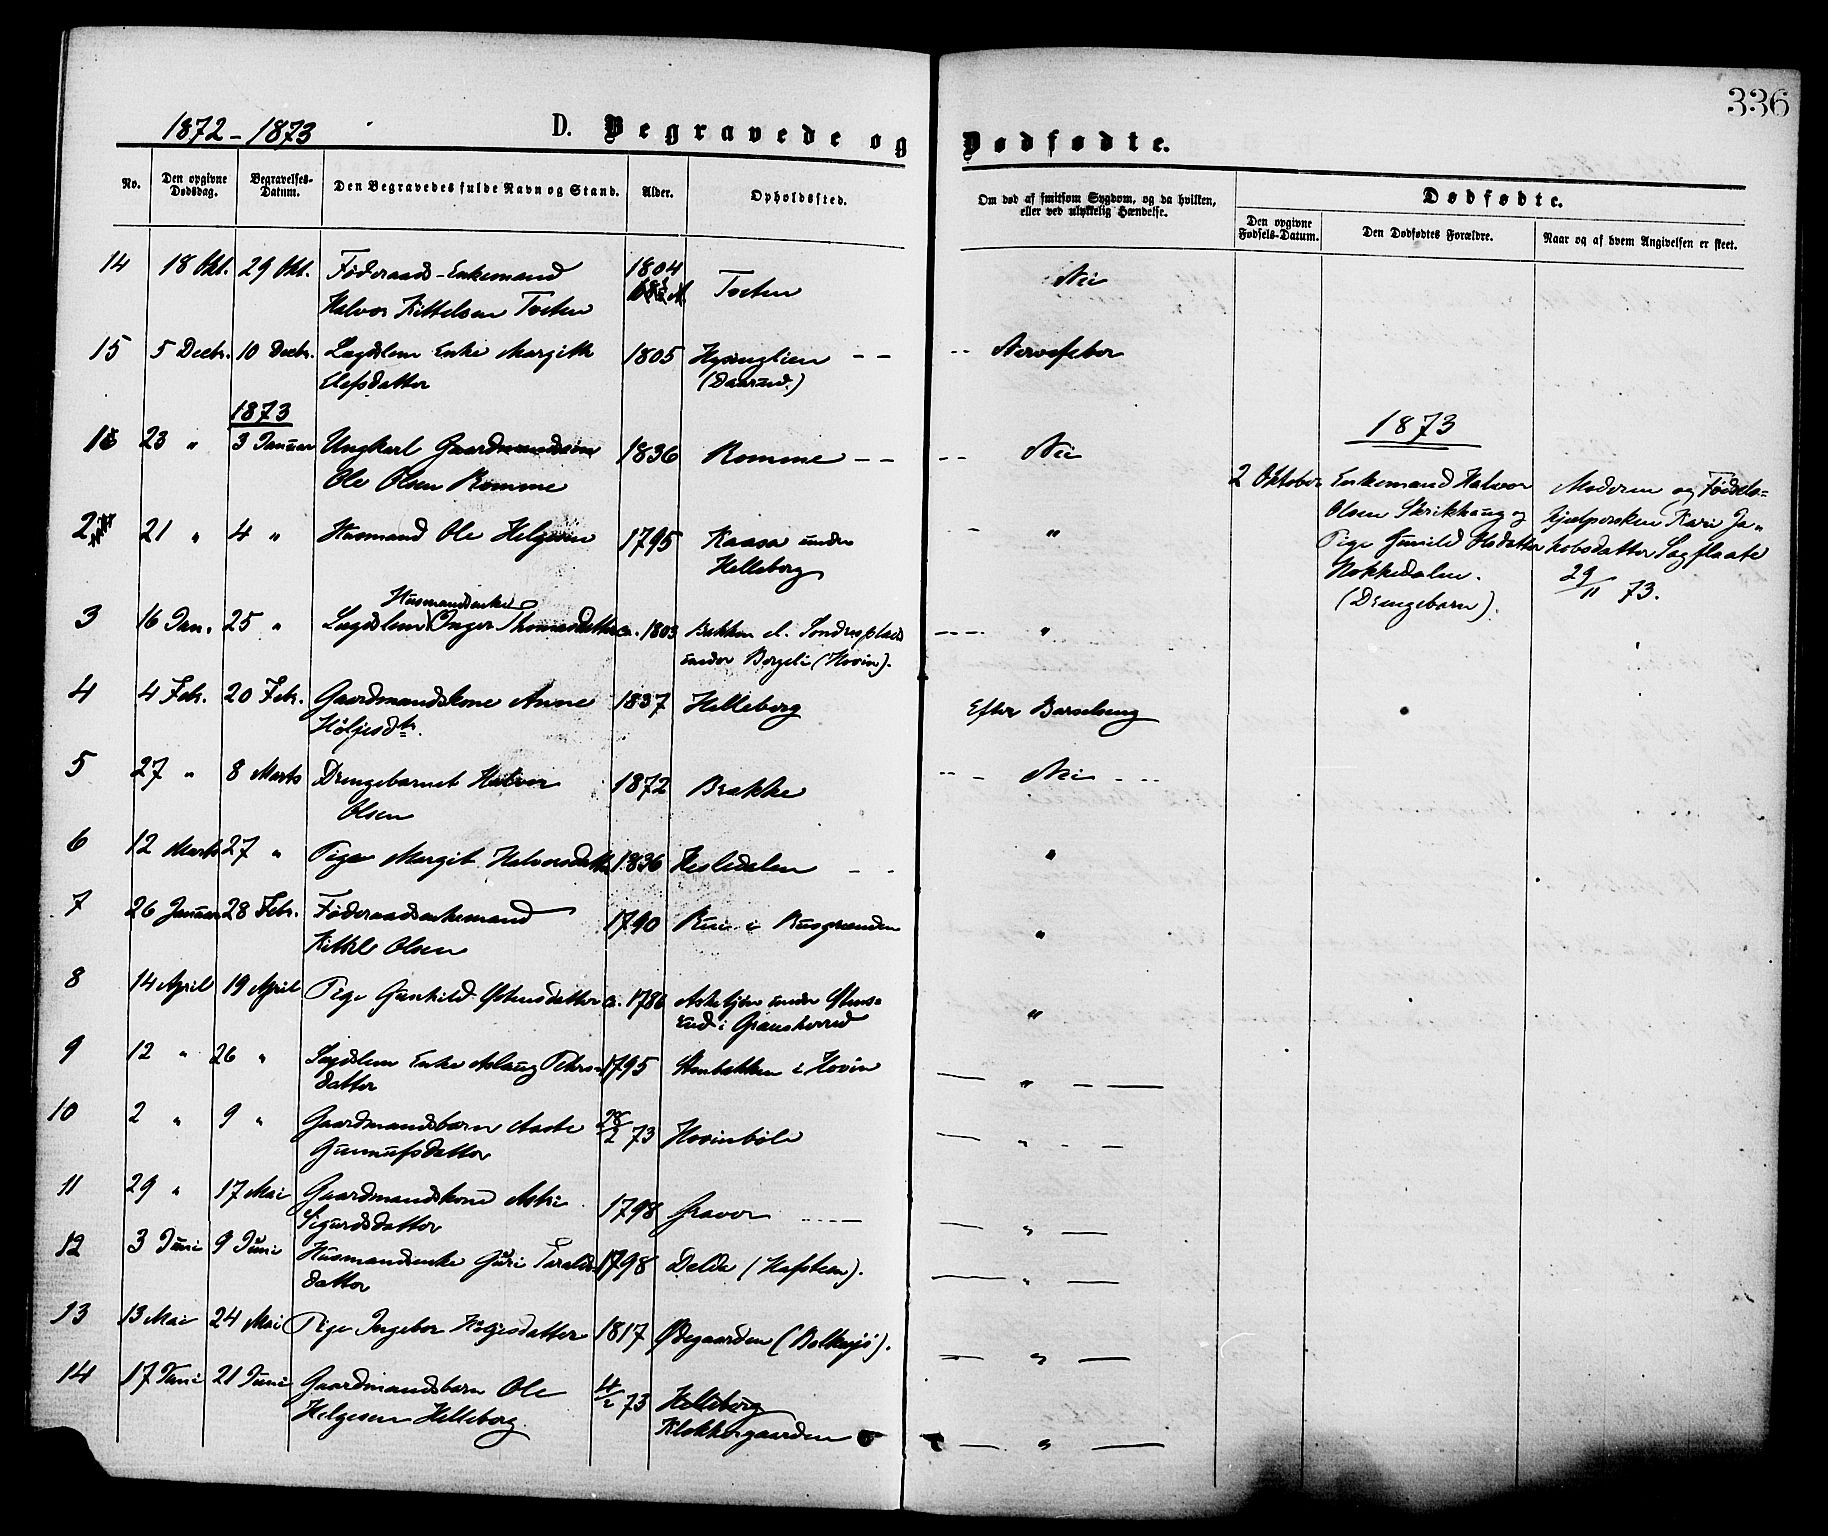 336
1872 - 1873
D. Begravede og Dødfødte.
No.
Den opgivne Dødsdag.
Begravelses-Datum.
Den Begravedes fulde Navn og Stand.
Alder.
Opholdssted.
Om død af smitsom Sygdom, og da hvilken, eller ved ulykkelig Hændelse.
Dødfødte.
Den opgivne Fødsels-Datum.
Den Dødfødtes Forældre.
Naar og af hvem Angivelsen er skeet.
14 18 Okt. 29 Okt. Føderaads-Enkemand 1804 Tveten Nei
Halvor Kittelsen Tveten
15 5 Decbr. 10 Decbr. Lægdslem Enke Margith 1805 - - -- Nervefeber
Olafsdatter (Daarud.)
1873
1 23 " 3 Januar Ungkarl Gaardmandssøn 1836 Romme - - -- Nei
Ole Olsen Romme
2 21 " 4 " Husmand Ole Helgesen 1795 Kaasa under - "
Helleberg
Husmandsenke
3 16 Jan. 25 " Lægdslem Inger Thomasdatter c. 1803 Bakken el. Sondresplads - - - "
under Bergeli (Hovin).
4 4 Febr. 20 Febr. Gaardmandskone Anne 1837 Helleberg Efter Barselseng
Høljesdtr.
5 27 " 8 Marts Drengebarnet Halvor 1872 Brakke -- - Nei - --
Olsen
6 12 Marts 27 " Pige Margit Halvorsdatter 1836 Hesledalen - - "
7 26 Januar 28 Febr. Føderaadsenkemand 1790 Rui i Busgrænden "
Kittil Olsen
8 14 April 19 April Pige Gunhild Østensdatter c. 1786 under
"
9 12 " 26 " Lægdslem Enke Aslaug Peders- 1795 Stenbakken i Hovin — " - —
datter
10 2 " 9 " Gaardmandsbarn Aaste 28/2 73 Hovinbøle — " - —
Gunnulfsdatter
11 29 " 17 Mai Gaardmandskone Astri 1798 Gravor - - - — — " —
Sigurdsdatter
12 3 Juni 9 Juni Husmandsenke Guri Taralds- 1798 Dalen (Hafsteen). — " —
datter
13 13 Mai 24 Mai Pige Ingebor Høljesdatter 1817 Ødegaarden (Bolkesjø). — " —
14 17 Juni 21 Juni Gaardmandsbarn Ole 4/2 73 Helleberg
Helgesen Helleberg. Klokkergaarden — " —
1873
2 Oktober Enkemand Halvor Moderen og Fødsels-
Olsen Skrikhaug og hjælpersken Kari Ja-
Pige Gunild Olsdatter kobsdatter Sagflaate
Nokkedalen. 29/11 73.
(Drengebarn).